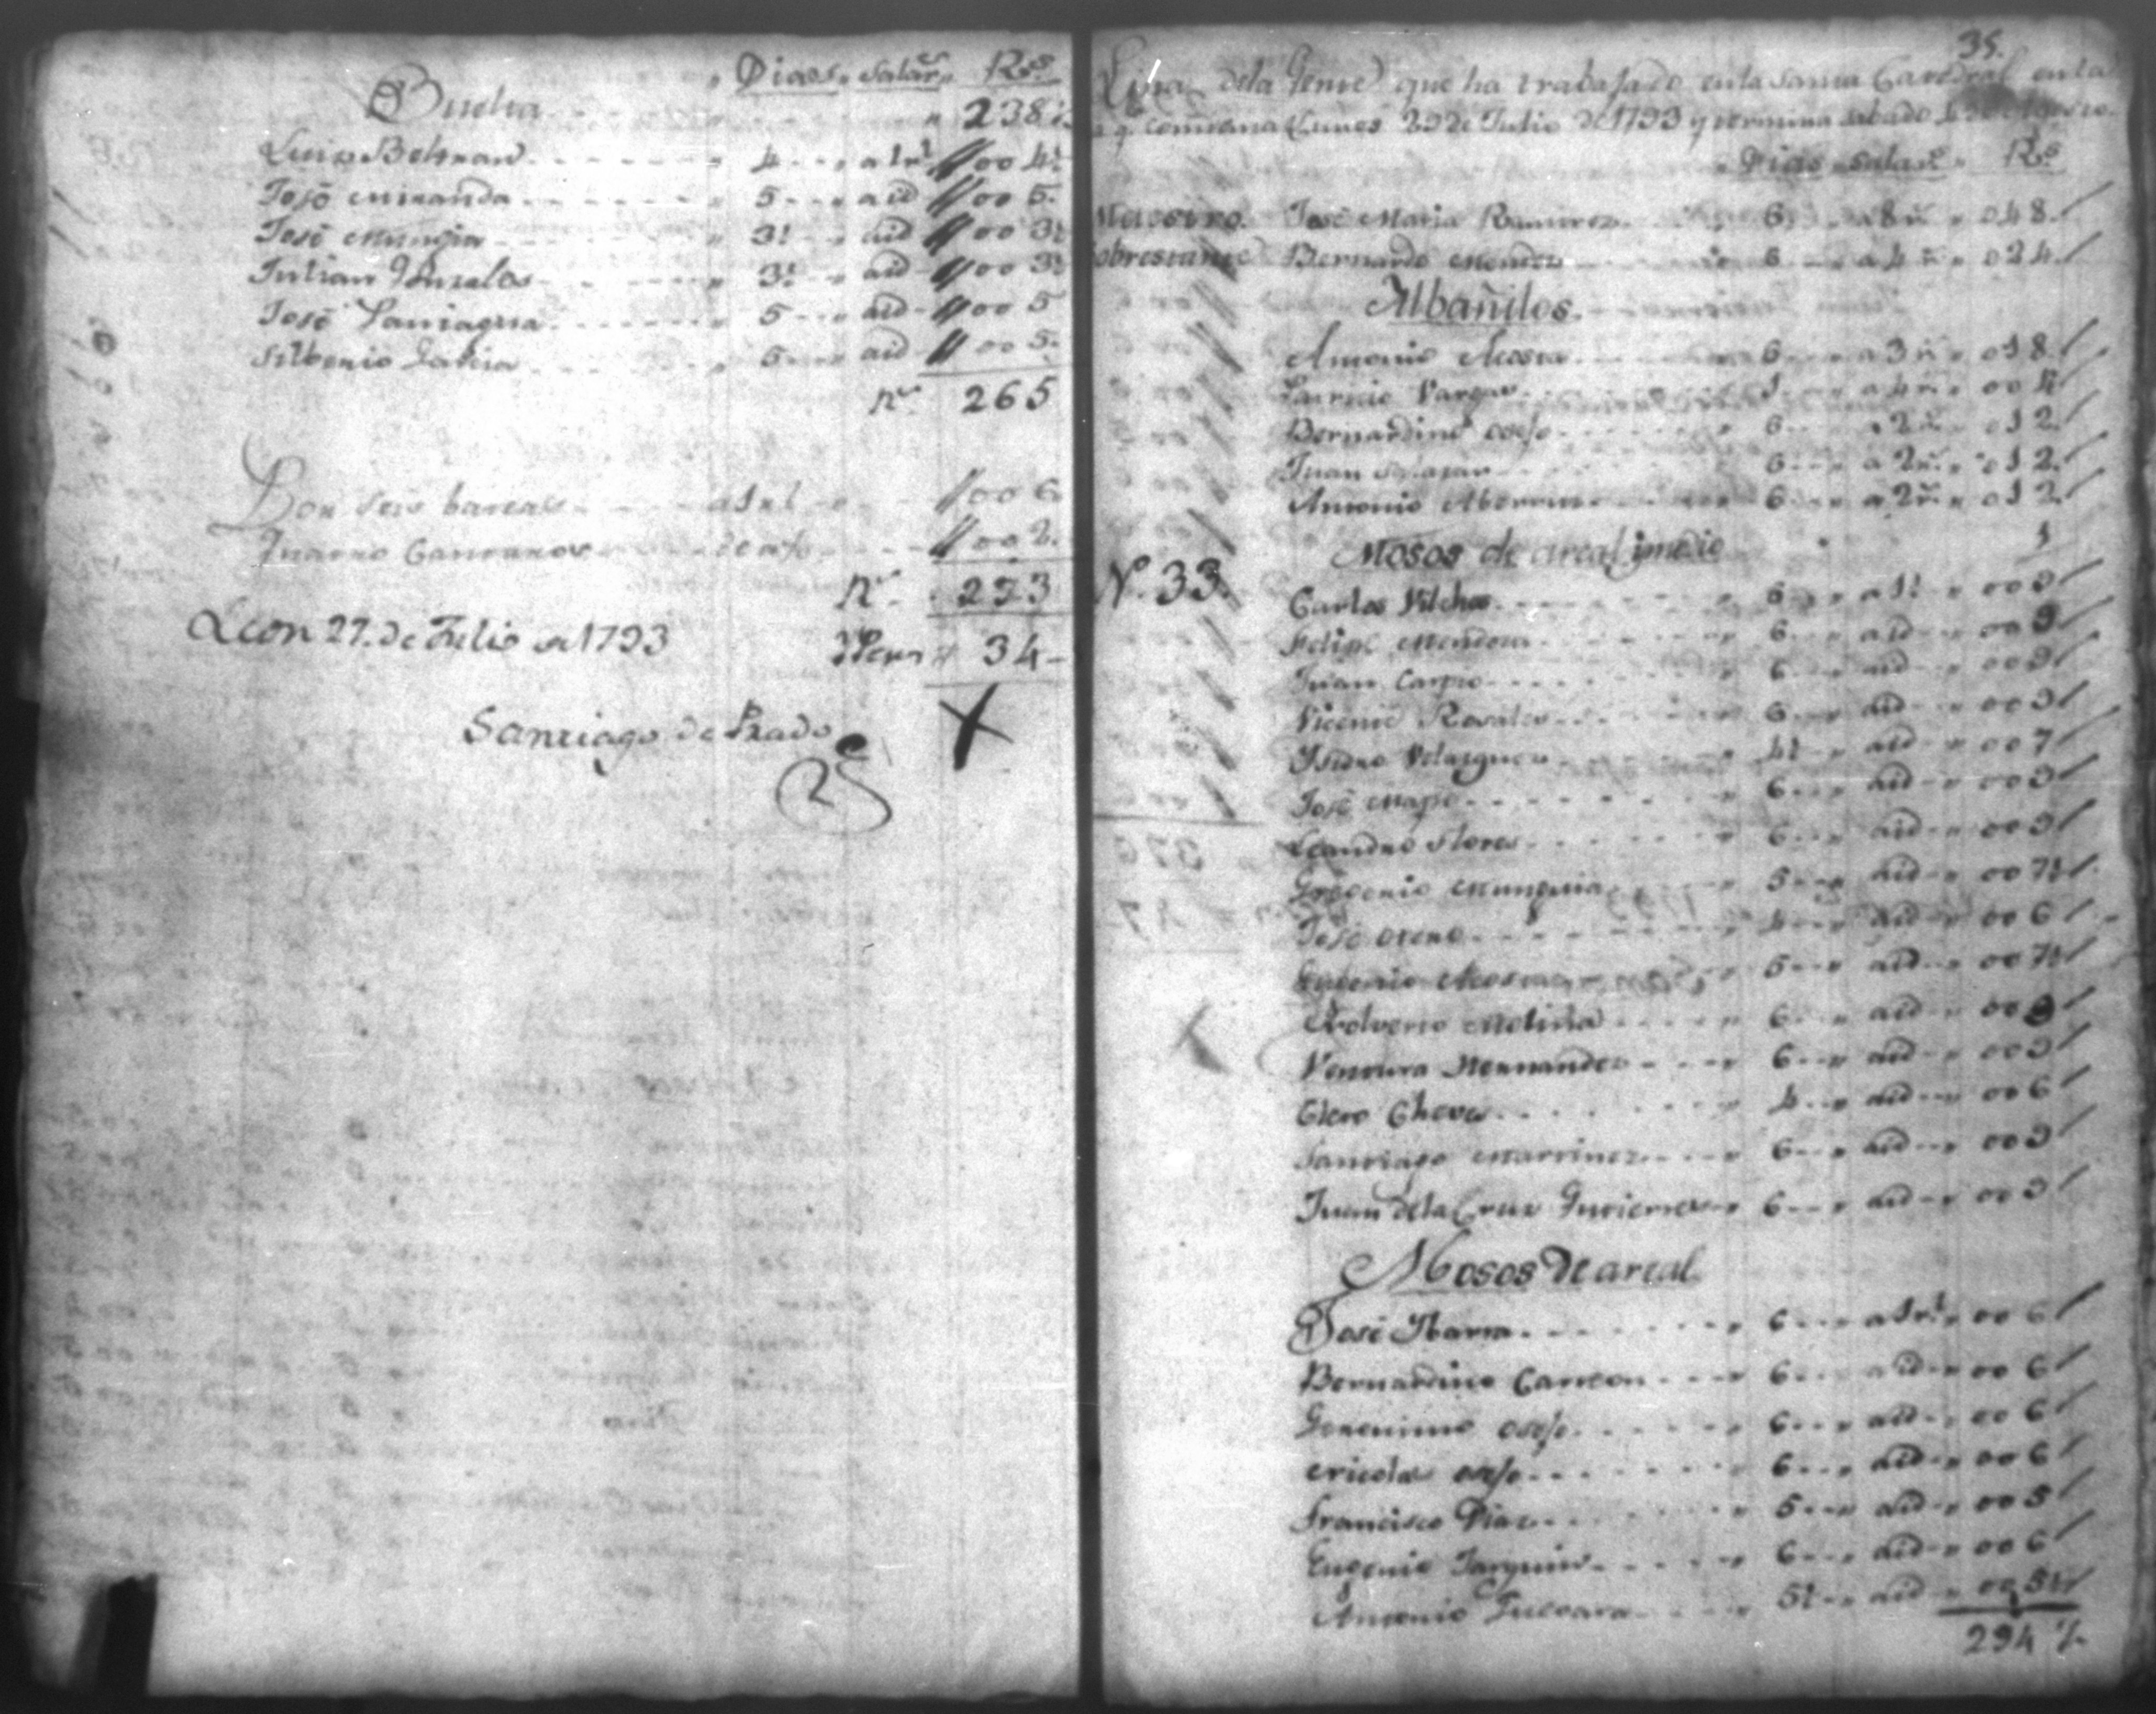 Buelta " Dias " Salar.o " R.s
" 238 ½
Luis Beltran " 4 " a 1 r.l " 00 4.
José Miranda " 5 " a id " 00 5.
José Mungia " 3½ " a id " 00 3½
Julian Gonzales " 3½ " a id " 00 3½
José Paniagua " 5 " a id " 00 5
Silberio Gabia " 5 " a id " 00 5.
R.s 265
Por seis bareas a 1 r.l " 00 6
Quatro Cantaros de a ½ " 00 2.
R.s 273
Leon 27. de Julio de 1793 Pesos " 34 -
Santiago de Prado
35.
Lista dela Gente que ha trabajado en la Santa Catedral en la
q.e comensa Lunes 29 de Julio de 1793 y termina sabado 3 de Agosto.
" Dias " salar.o " R.s
Maestro. José Maria Ramires " 6 " a 8 r.s " 0 4 8.
Sobrestante Bernardo Mendes " 6 " a 4 r.s " 0 2 4.
Albañiles.
Antonio Acosta " 6 " a 3 r.s " 0 1 8
Patricio Vargas " 1 " a 4 r.s " 00 4
Bernardino osejo " 6 " a 2 r.s " 0 1 2.
Juan Salazar " 6 " a 2 r.s " 0 1 2.
Antonio " 6 " a 2 r.s " 0 1 2
Mosos de a real i medio
N.o 33. Carlos Vilches " 6 " a 1½ " 00 9
Felipe Mendosa " 6 " a id " 00 9
Juan Carpio " 6 " a id " 00 9
Vicente Rosales " 6 " a id " 00 9
Isidro Velasques " 4½ " a id " 00 7
José " 6 " a id " 00 9
Leandro Flores " 6 " a id " 00 9
Gregorio Munguia " 5 " a id " 00 7½
José " 4 " a id " 00 6
Eugenio Acosta " 5 " a id " 00 7½
Molina " 6 " a id " 00 9
Ventura Hernandes " 6 " a id " 00 9
Cleto Cheves " 4 " a id " 00 6
Santiago Martines " 6 " a id " 00 9
Juan dela Cruz Gutierres " 6 " a id " 00 9
Mosos de a real.
José Ibarra " 6 " a 1 r.l " 00 6
Bernardino Carrion " 6 " a id " 00 6
Geronimo osejo " 6 " a id " 00 6
Nicolas osejo " 6 " a id " 00 6
Francisco Dias " 5 " a id " 00 5
Eugenio Jarquin " 6 " a id " 00 6
Antonio Guevara " 5½ " a id " 00 5½
294 ½